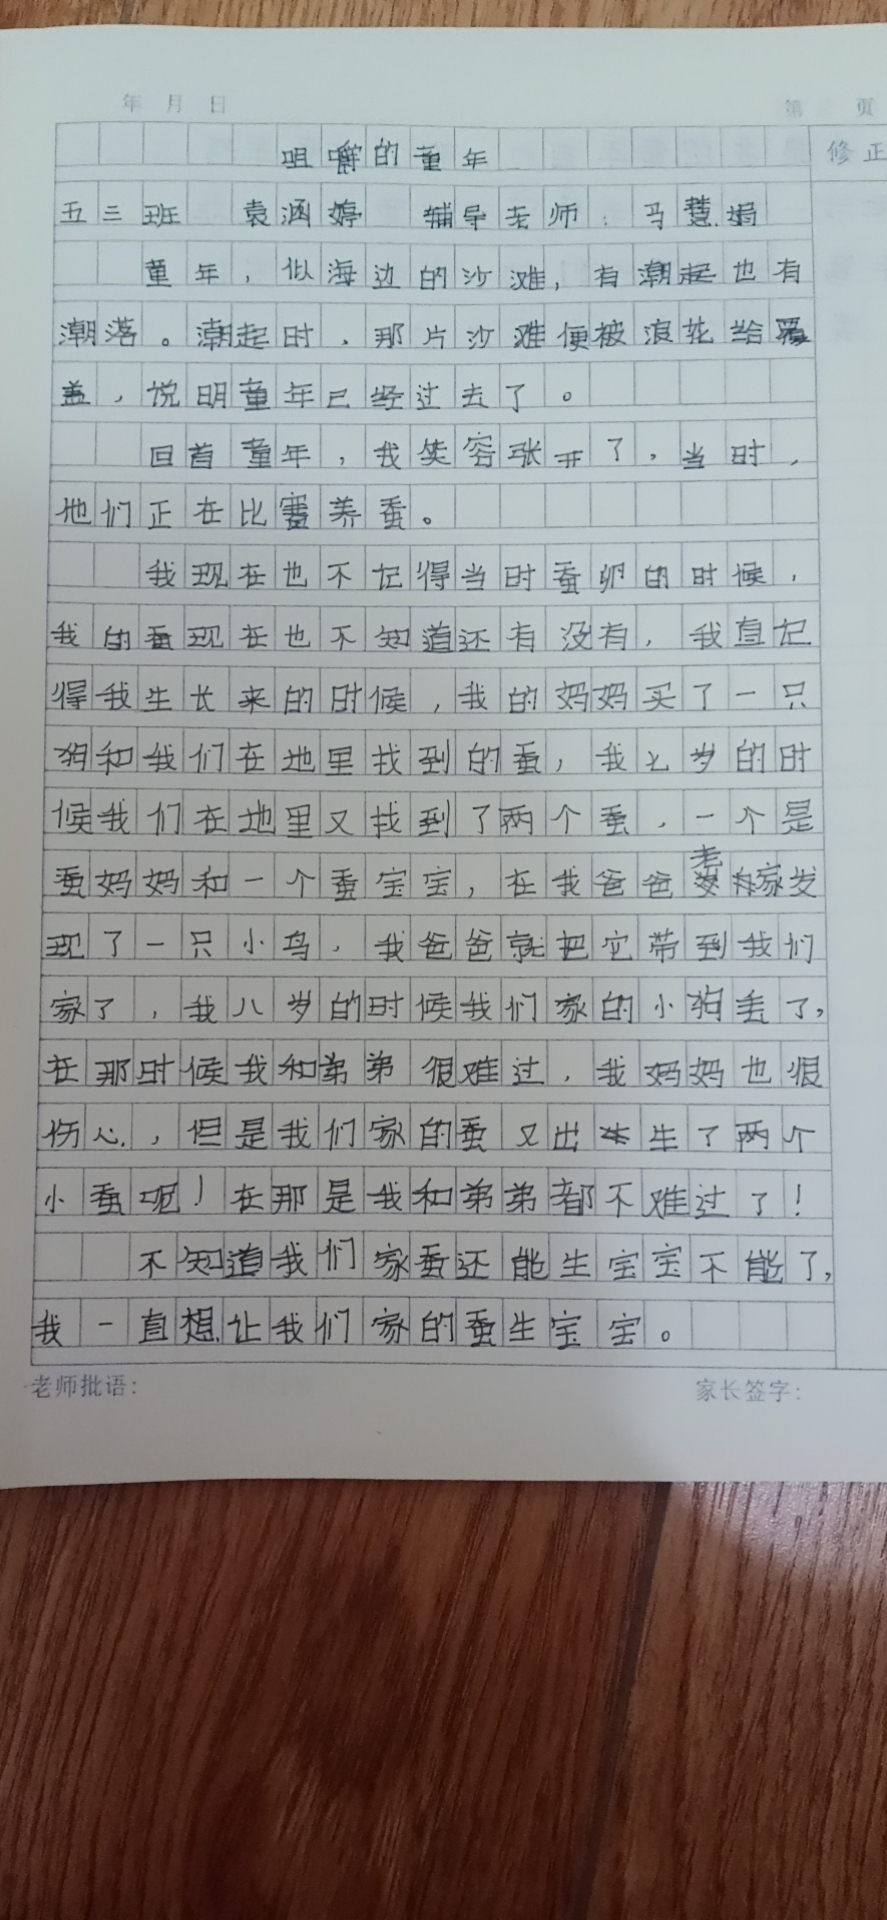 年 月 日
第 页
咀嚼的童年
修正
五三班 袁涵婷 辅导老师:马慧娟
童年,似海边的沙滩,有潮起也有
潮落。潮起时,那片沙滩便被浪花给覆
盖,说明童年已经过去了。
回首童年,我笑容张开了,当时,
他们正在比赛养蚕。
我现在也不记得当时蚕卵的时候,
我的蚕现在也不知道还有没有,我直记
得我生长来的时候,我的妈妈买了一只
狗和我们在地里找到的蚕,我七岁的时
候我们在地里又找到了两个蚕,一个是
蚕妈妈和一个蚕宝宝,在我爸爸老家发
现了一只小鸟,我爸爸就把它带到我们
家了,我八岁的时候我们家的小狗丢了,
在那时候我和弟弟很难过,我妈妈也很
伤心,但是我们家的蚕又出生了两个
小蚕呢!在那是我和弟弟都不难过了!
不知道我们家蚕还能生宝宝不能了,
我一直想让我们家的蚕生宝宝。
老师批语:
家长签字: